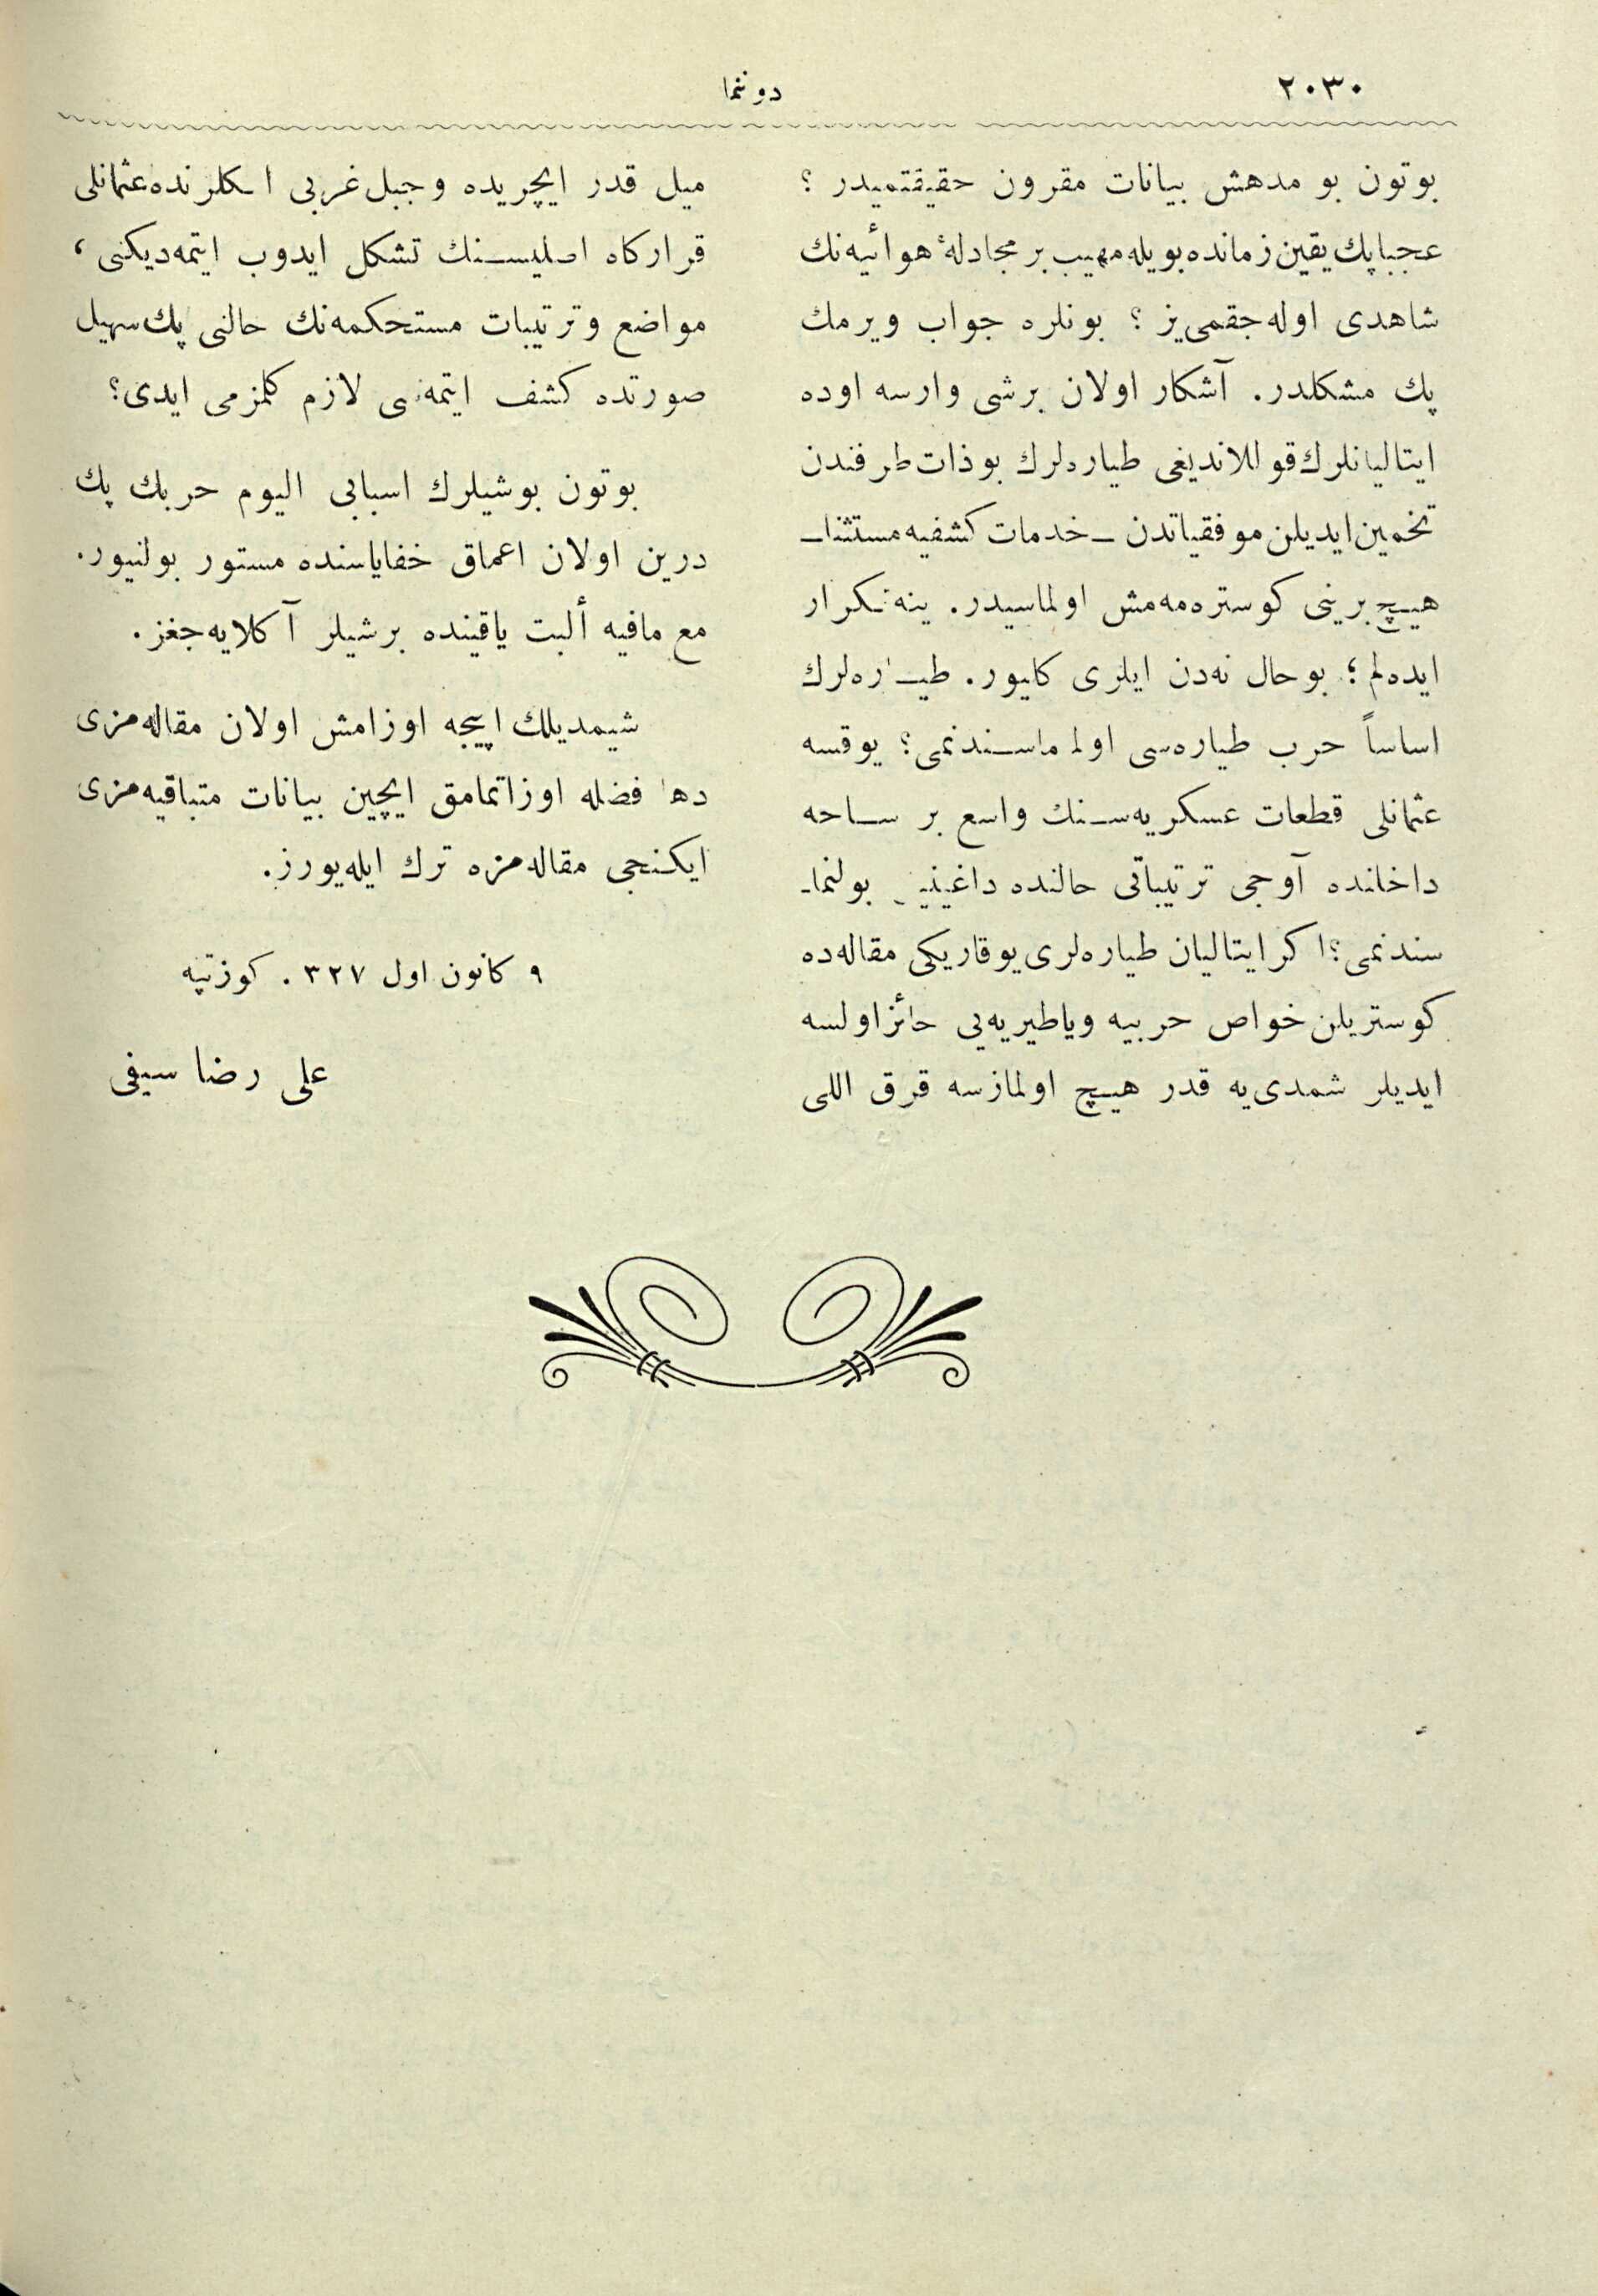 ٢٠٣٠
دوننما
بوتون بو مدهش بيانات مقرون حقيقتميدر ؟
عجبا پك يقين زمانده بويله مهيب بر مجادلۀ هوائيه‌نك
شاهدی اوله‌جقمی‌يز ؟ بونلره جواب ويرمك
پك مشكلدر. آشكار اولان برشی وارسه اوده
ايتاليانلرك قوللانديغی طياره‌لرك بو ذات طرفندن
تخمين ايديلن موفقياتدن ـ خدمات كشفيه مستثنا ـ
هيچ برينی كوستره‌مه‌مش اولماسيدر. ينه تكرار
ايده‌لم ؛ بو حال نه‌دن ايلری كليور. طياره‌لرك
اساساً حرب طياره‌سی اولماسندنمی؟ يوقسه
عثمانلی قطعات عسكريه‌سنك واسع بر ساحه
داخلنده آوجی ترتيباتی حالنده داغينيق بولنما-
سندنمی؟ اكر ايتاليان طياره‌لری يوقاريكی مقاله‌ده
كوستريلن خواص حربيه ويا طيريه‌يی حائز اولسه
ايديلر شمدی‌يه قدر هيچ اولمازسه قرق اللی
ميل قدر ايچريده و جبل غربی اتكلرنده عثمانلی
قراركاه اصليسنك تشكل ايدوب ايتمه‌ديكنی ،
مواضع و ترتيبات مستحكمه‌نك حالنی پك سهل
صورتده كشف ايتمه‌سی لازم كلمزمی ايدی؟
بوتون بو شيلرك اسبابی اليوم حربك پك
درين اولان اعماق خفاياسنده مستور بولنيور.
مع مافيه ألبت ياقينده بر شيلر آكلايه‌جغز.
شيمديلك اپيجه اوزامش اولان مقاله‌مزی
دها فضله اوزاتمامق ايچين بيانات متباقيه‌مزی
ايكنجی مقاله‌مزه ترك ايله‌يورز.
٩ كانون اول ٣٢٧ . كوزتپه
علی رضا سيفی